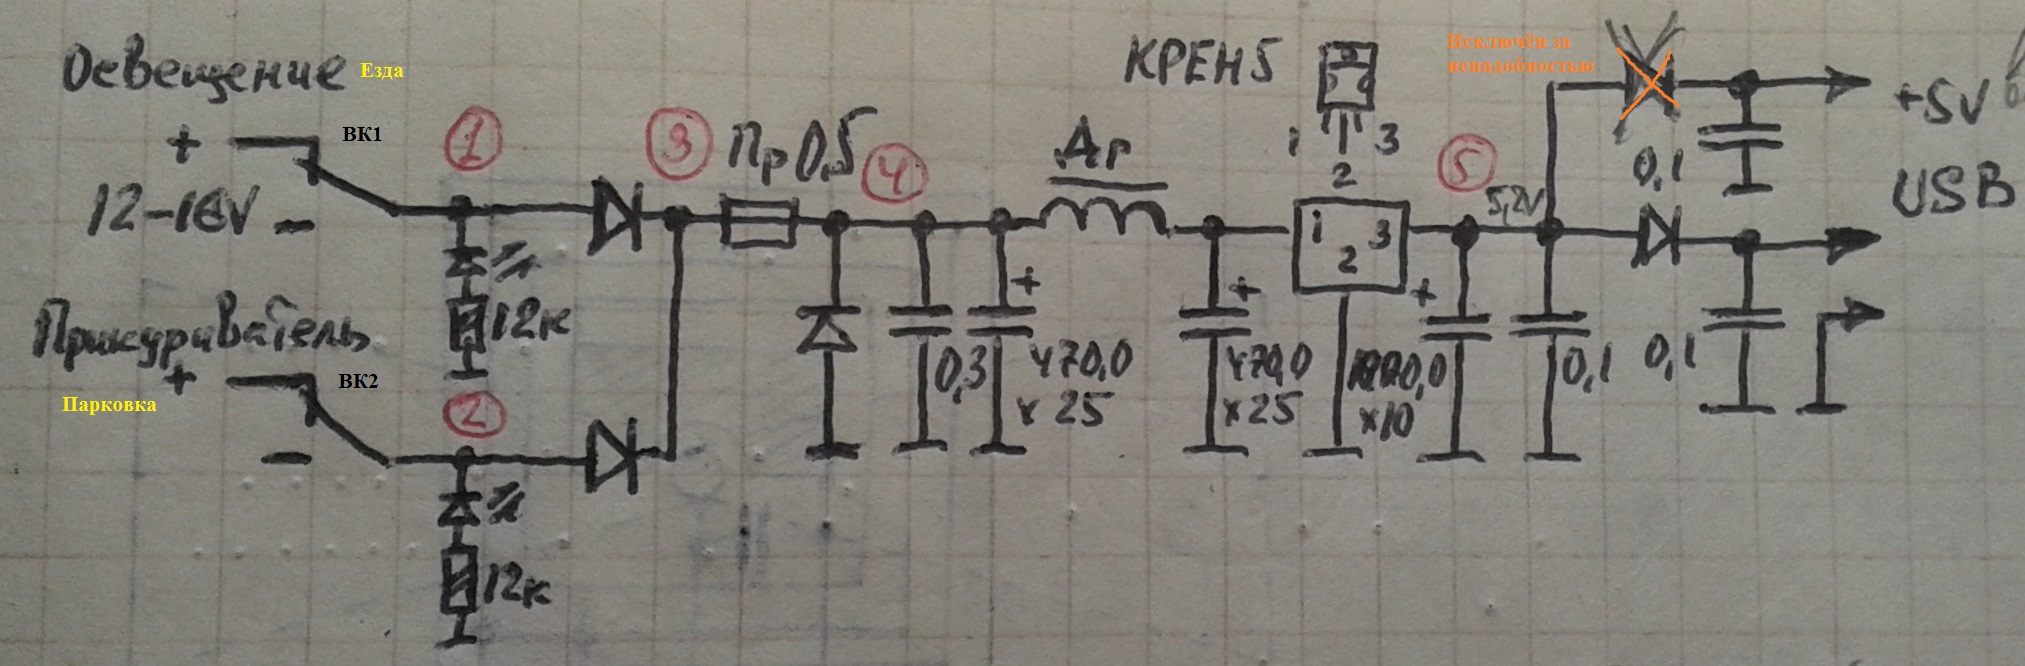 Освещение Езда
+ ВК1
12-16V
–
Прикуриватель
+ ВК2
Парковка
–
1
2
3
4
5
12к
12к
Пр 0,5
0,3
+
470,0
x 25
Др
+
470,0
x 25
КРЕН5
1 2 3
1 2 3
+
1000,0
x10
5,2V
0,1
Исключён за
ненадобностью
0,1
0,1
+5V
USB